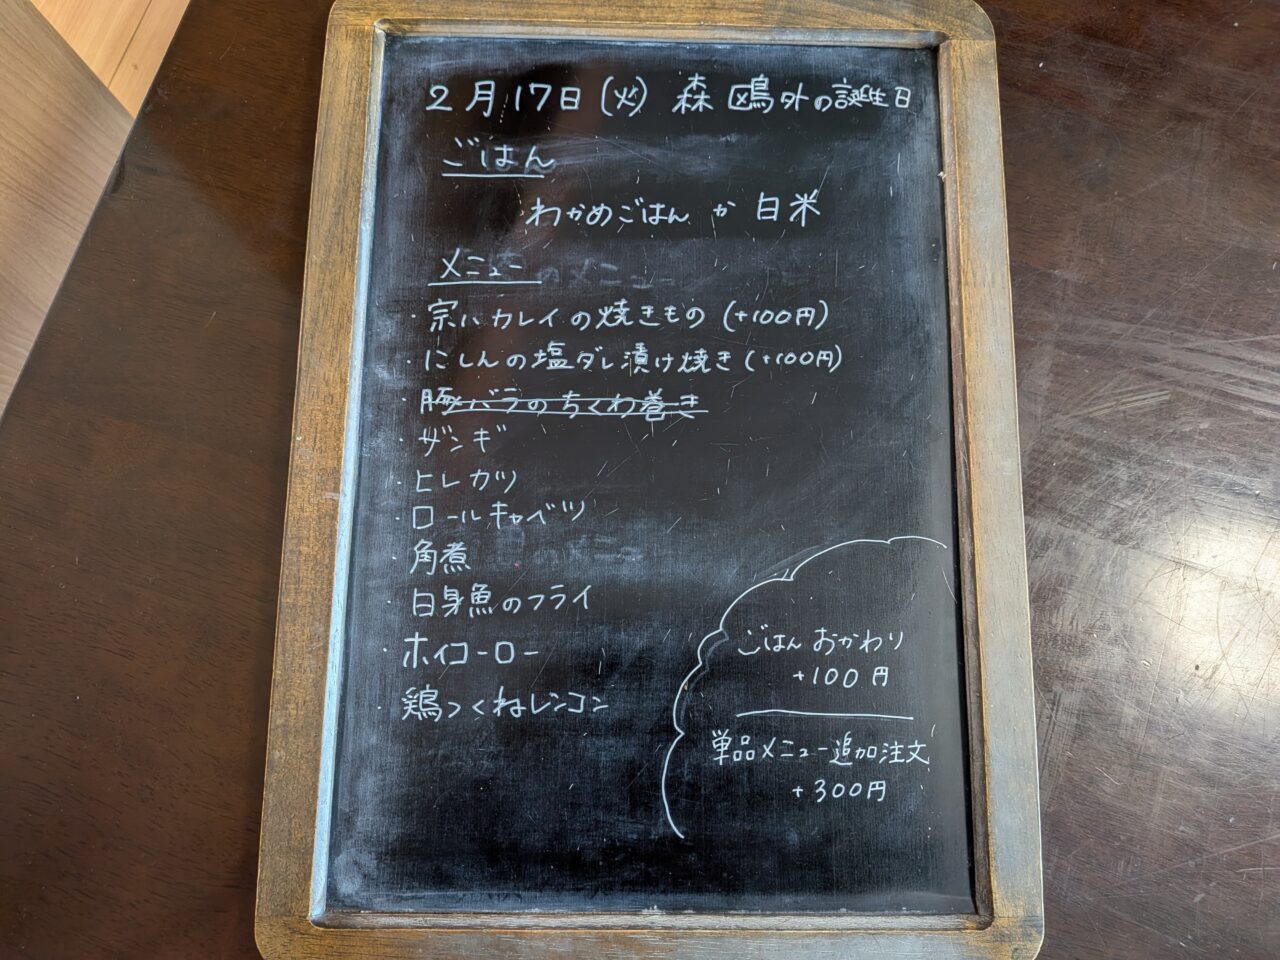 2月17日(火) 森鴎外の誕生日
ごはん
わかめごはん か 白米
メニュー
・宗八カレイの焼きもの (+100円)
・にしんの塩ダレ漬け焼き (+100円)
・豚バラのちくわ巻き
・ザンギ
・ヒレカツ
・ロールキャベツ
・角煮
・白身魚のフライ
・ホイコーロー
・鶏つくねレンコン
ごはん おかわり
+100円
単品メニュー追加注文
+300円